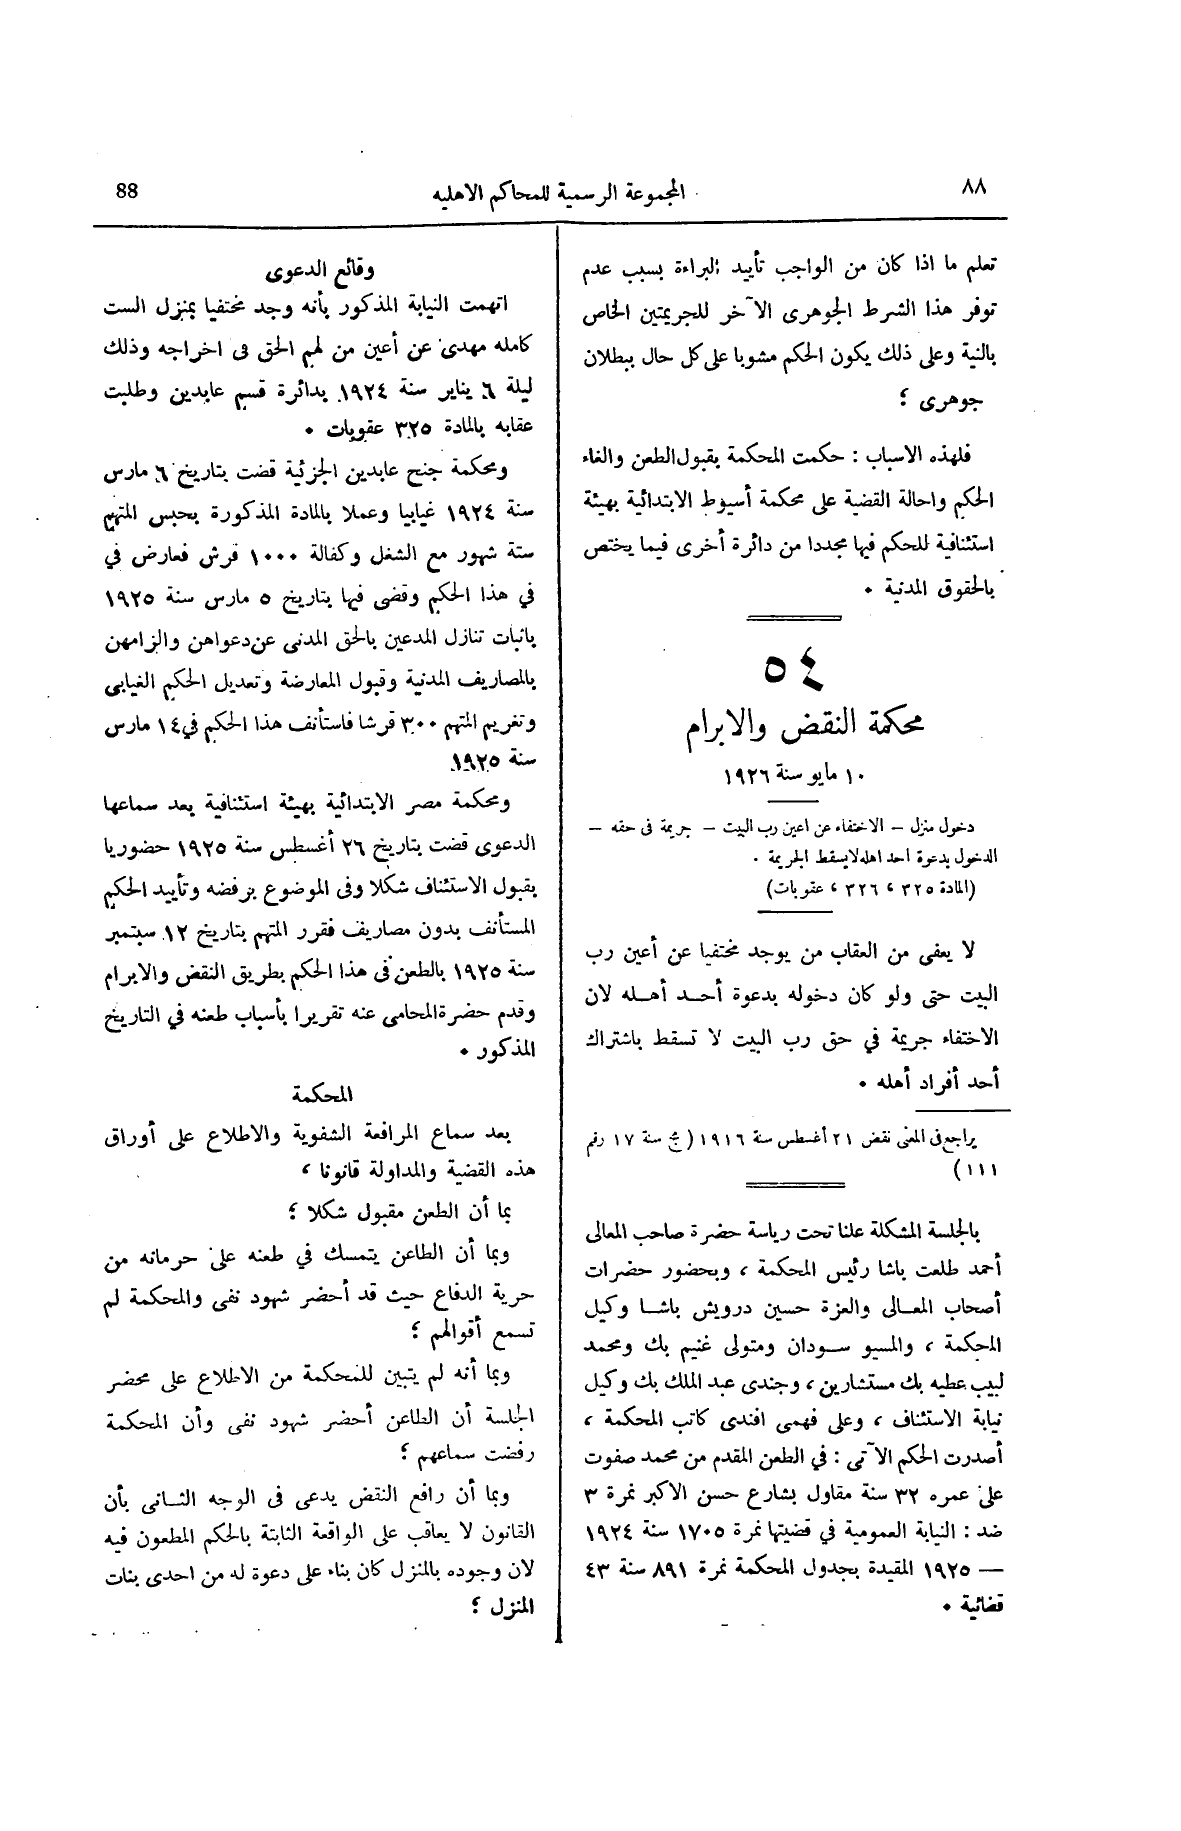 ٨٨
المجموعة الرسمية للمحاكم الاهليه
88
تعلم ما اذا كان من الواجب تأييد البراءة بسبب عدم
توفر هذا الشرط الجوهرى الآخر للجريمتين الخاص
بالنية وعلى ذلك يكون الحكم مشوبا على كل حال ببطلان
جوهرى ؛
فلهذه الاسباب : حكمت المحكمة بقبول الطعن والغاء
الحكم واحالة القضية على محكمة أسيوط الابتدائية بهيئة
استئنافية للحكم فيها مجددا من دائرة أخرى فيما يختص
بالحقوق المدنية .
٥٤
محكمة النقض والابرام
١٠ مايو سنة ١٩٢٦
دخول منزل – الاختفاء عن اعين رب البيت – جريمة فى حقه –
الدخول بدعوة احد اهله لا يسقط الجريمة .
(المادة ٣٢٥ ، ٣٢٦ ، عقوبات)
لا يعفى من العقاب من يوجد مختفيا عن أعين رب
البيت حتى ولو كان دخوله بدعوة أحد أهله لان
الاختفاء جريمة في حق رب البيت لا تسقط باشتراك
أحد أفراد أهله .
يراجع فى المعنى نقض ٢١ أغسطس سنة ١٩١٦ ( مج سنة ١٧ رقم
١١١ )
بالجلسة المشكلة علنا تحت رياسة حضرة صاحب المعالى
أحمد طلعت باشا رئيس المحكمة ، وبحضور حضرات
أصحاب المعالى والعزة حسين درويش باشا وكيل
المحكمة ، والمسيو سودان ومتولى غنيم بك ومحمد
لبيب عطيه بك مستشارين ، وجندى عبد الملك بك وكيل
نيابة الاستئناف ، وعلى فهمى افندى كاتب المحكمة ،
أصدرت الحكم الآتى : في الطعن المقدم من محمد صفوت
على عمره ٣٢ سنة مقاول بشارع حسن الاكبر نمرة ٣
ضد : النيابة العمومية في قضيتها نمرة ١٧٠٥ سنة ١٩٢٤
— ١٩٢٥ المقيدة بجدول المحكمة نمرة ٨٩١ سنة ٤٣
قضائية .
وقائع الدعوى
اتهمت النيابة المذكور بأنه وجد مختفيا بمنزل الست
كامله مهدى عن أعين من لهم الحق فى اخراجه وذلك
ليلة ٦ يناير سنة ١٩٢٤ بدائرة قسم عابدين وطلبت
عقابه بالمادة ٣٢٥ عقوبات .
ومحكمة جنح عابدين الجزئية قضت بتاريخ ٦ مارس
سنة ١٩٢٤ غيابيا وعملا بالمادة المذكورة بحبس المتهم
ستة شهور مع الشغل وكفالة ١٠٠٠ قرش فعارض في
في هذا الحكم وقضى فيها بتاريخ ٥ مارس سنة ١٩٢٥
باثبات تنازل المدعين بالحق المدنى عن دعواهن والزامهن
بالمصاريف المدنية وقبول المعارضة وتعديل الحكم الغيابى
وتغريم المتهم ٣٠٠ قرشا فاستأنف هذا الحكم في ١٤ مارس
سنة ١٩٢٥
ومحكمة مصر الابتدائية بهيئة استئنافية بعد سماعها
الدعوى قضت بتاريخ ٢٦ أغسطس سنة ١٩٢٥ حضوريا
بقبول الاستئناف شكلا وفى الموضوع برفضه وتأييد الحكم
المستأنف بدون مصاريف فقرر المتهم بتاريخ ١٢ سبتمبر
سنة ١٩٢٥ بالطعن فى هذا الحكم بطريق النقض والابرام
وقدم حضرة المحامى عنه تقريرا بأسباب طعنه في التاريخ
المذكور .
المحكمة
بعد سماع المرافعة الشفوية والاطلاع على أوراق
هذه القضية والمداولة قانونا ،
بما أن الطعن مقبول شكلا ؛
وبما أن الطاعن يتمسك في طعنه على حرمانه من
حرية الدفاع حيث قد أحضر شهود نفى والمحكمة لم
تسمع أقوالهم ؛
وبما أنه لم يتبين للمحكمة من الاطلاع على محضر
الجلسة أن الطاعن أحضر شهود نفى وأن المحكمة
رفضت سماعهم ؛
وبما أن رافع النقض يدعى فى الوجه الثانى بأن
القانون لا يعاقب على الواقعة الثابتة بالحكم المطعون فيه
لان وجوده بالمنزل كان بناء على دعوة له من احدى بنات
المنزل ؛